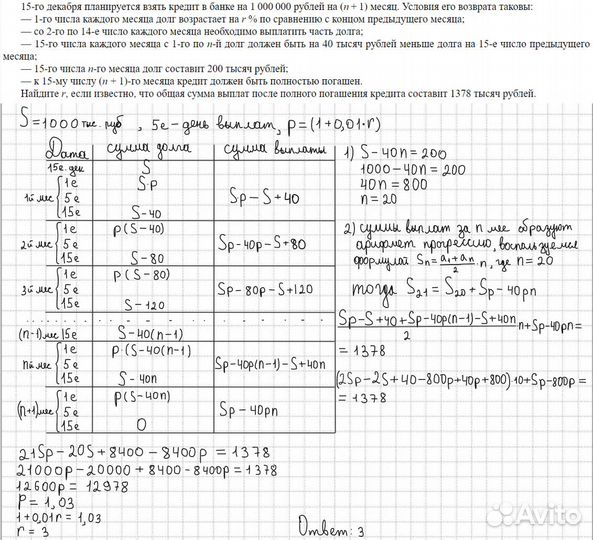 15-го декабря планируется взять кредит в банке на 1 000 000 рублей на (n + 1) месяц. Условия его возврата таковы:
— 1-го числа каждого месяца долг возрастает на r % по сравнению с концом предыдущего месяца;
— со 2-го по 14-е число каждого месяца необходимо выплатить часть долга;
— 15-го числа каждого месяца с 1-го по n-й долг должен быть на 40 тысяч рублей меньше долга на 15-е число предыдущего
месяца;
— 15-го числа n-го месяца долг составит 200 тысяч рублей;
— к 15-му числу (n + 1)-го месяца кредит должен быть полностью погашен.
Найдите r, если известно, что общая сумма выплат после полного погашения кредита составит 1378 тысяч рублей.
S = 1000 тыс. руб , 5е - день выплат, p = (1+0,01·r)
Дата сумма долга сумма выплаты
15е.дек S
1й мес 1е S·p
5е Sp-S+40
15е S-40
2й мес 1е p(S-40)
5е Sp-40p-S+80
15е S-80
3й мес 1е p(S-80)
5е Sp-80p-S+120
15е S-120
(n-1)мес 15е S-40(n-1)
nй мес 1е p·(S-40(n-1)
5е Sp-40p(n-1)-S+40n
15е S-40n
(n+1)мес 1е p(S-40n)
5е Sp-40pn
15е 0
1) S-40n=200
1000-40n=200
40n=800
n=20
2) суммы выплат за n мес образуют
арифмет прогрессию, воспользуемся
формулой Sn = a1+an/2 · n, где n=20
тогда S21 = S20 + Sp-40pn
Sp-S+40+Sp-40p(n-1)-S+40n/2 n+Sp-40pn=
= 1378
(2Sp-2S+40-800p+40p+800)·10+Sp-800p=
= 1378
21Sp-20S+8400-8400p = 1378
21000p-20000+8400-8400p=1378
12600p = 12978
p = 1,03
1+0,01r = 1,03
r = 3
Ответ: 3
Avito